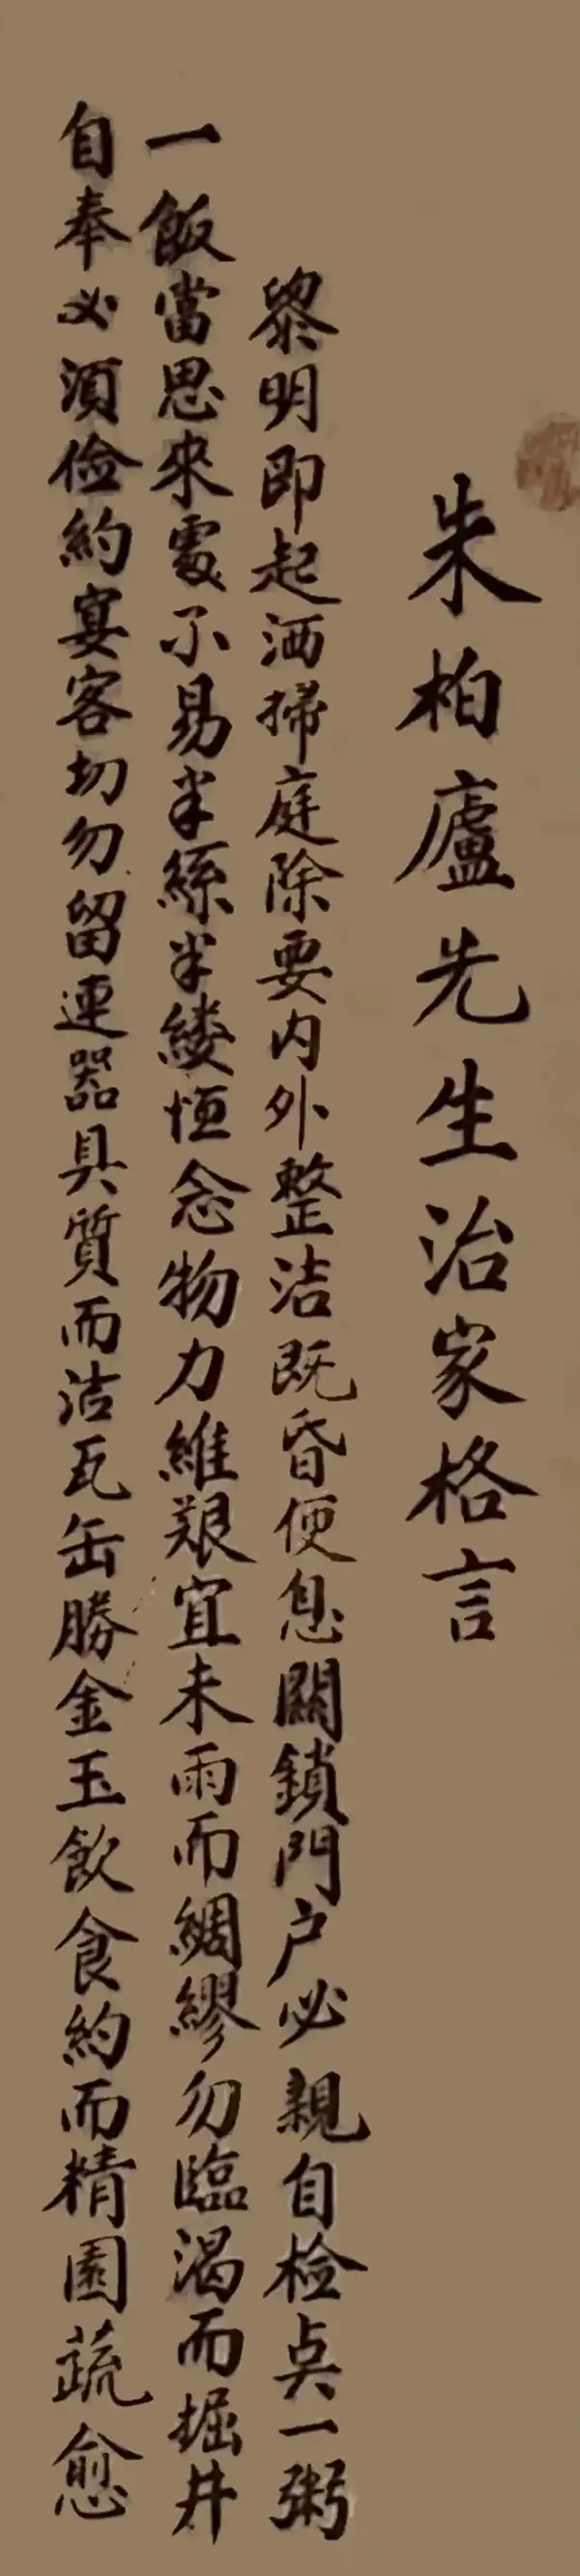 朱柏廬先生治家格言
黎明即起洒掃庭除要内外整洁既昏便息關鎖門户必親自检点一粥
一飯當思來處不易半絲半縷恒念物力維艱宜未雨而綢繆勿臨渴而掘井
自奉必須俭約宴客切勿留連器具質而洁瓦缶勝金玉飲食約而精園蔬愈